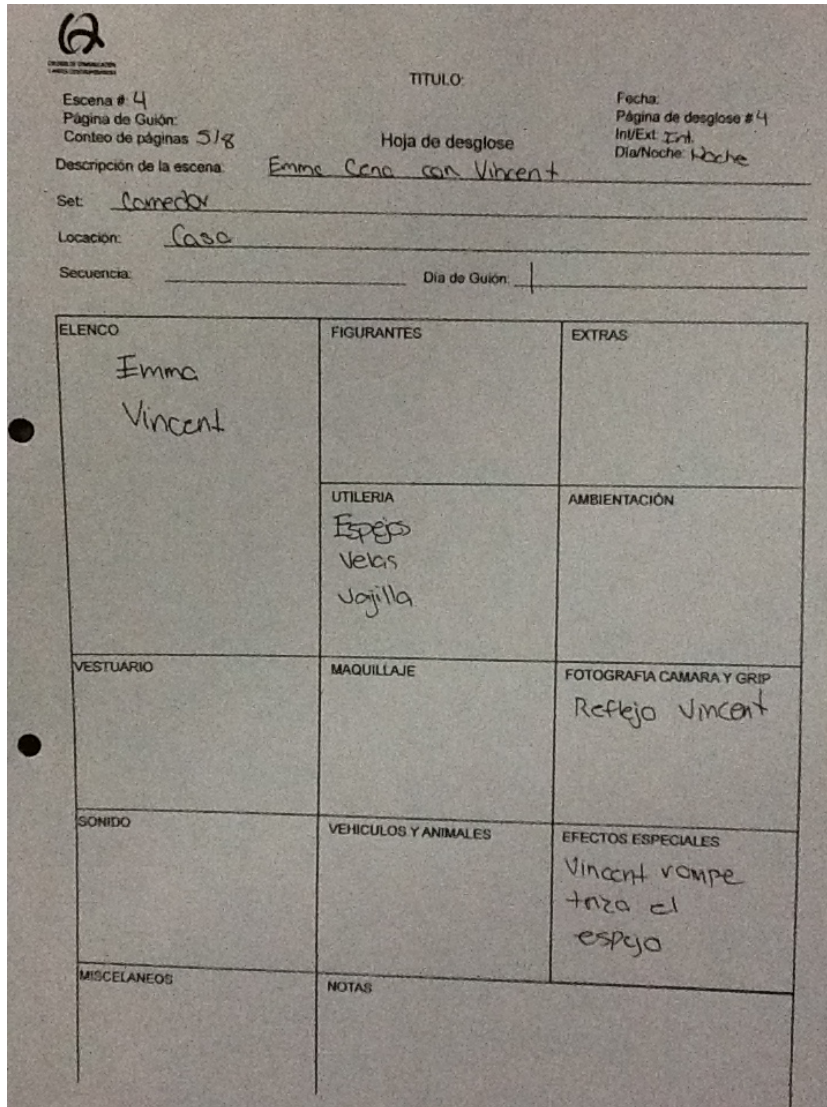 TITULO:
Escena #: 4
Página de Guión:
Conteo de páginas 5/8
Hoja de desglose
Fecha:
Página de desglose # 4
Int/Ext: Int.
Día/Noche: Noche
Descripción de la escena: Emma Cena con Vincent
Set: Comedor
Locación: Casa
Secuencia:
Día de Guión: 1
ELENCO
Emma
Vincent
FIGURANTES
EXTRAS
UTILERIA
Espejos
Velas
Vajilla
AMBIENTACIÓN
VESTUARIO
MAQUILLAJE
FOTOGRAFIA CAMARA Y GRIP
Reflejo Vincent
SONIDO
VEHICULOS Y ANIMALES
EFECTOS ESPECIALES
Vincent rompe
el
espejo
MISCELANEOS
NOTAS